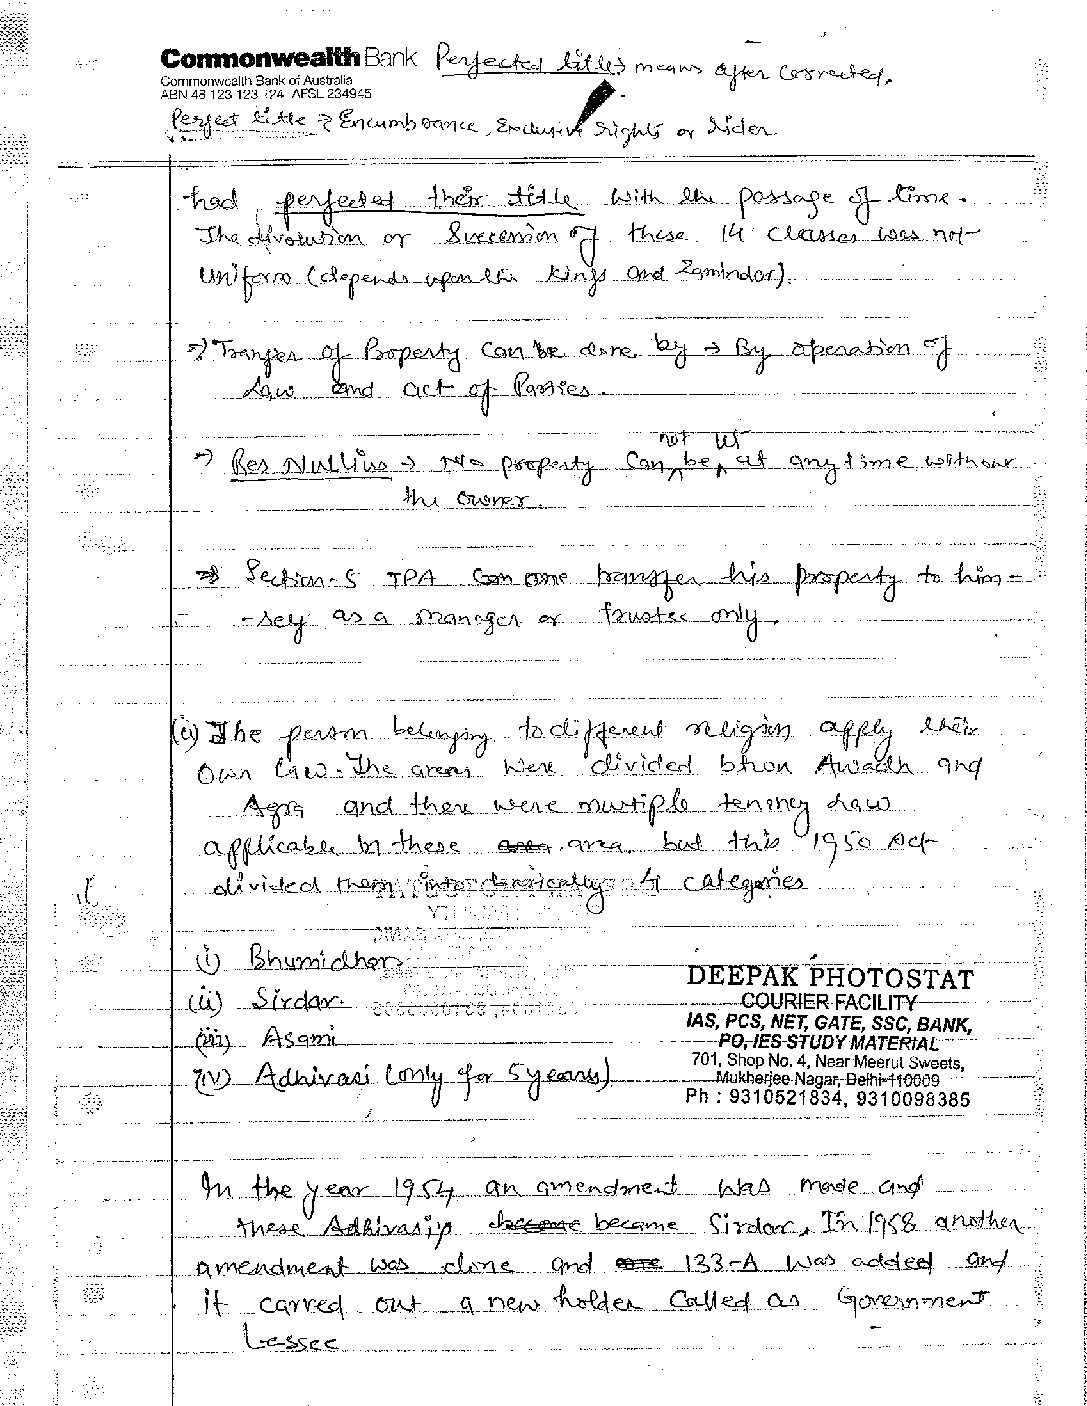 CommonwealthBank Perfected titles means after corrected.
Commonwealth Bank of Australia
ABN 48 123 123 124 AFSL 234945
Perfect title → Encumbrance, Exclusive rights or
had perfected their title with the passage of time.
The devolution or Succession of these 14 classes was not
uniform (depends upon the kings and Zamindar).
→ Tranfer of Property can be done by → By operation of
Law and act of Parties.
→ Res Nullius → No property can not be, at any time without
the owner.
⇒ Section-5 TPA can one transfer his property to him-
-self as a manager or trustee only.
The person belonging to different religion apply their
own law. The areas were divided btwn Awadh and
Agra and there were multiple tenancy Law
applicable in these area area, but this 1950 Act
divided them into 4 categories
(i) Bhumidhar
(ii) Sirdar.
(iii) Asami
(iv) Adhivasi (only for 5 years)
DEEPAK PHOTOSTAT
COURIER FACILITY
IAS, PCS, NET, GATE, SSC, BANK,
PO, IES STUDY MATERIAL
701, Shop No. 4, Near Meerut Sweets,
Mukherjee Nagar, Delhi-110009
Ph : 9310521834, 9310098385
In the year 1954 an amendment was made and
these Adhivasi became Sirdar. In 1958 another
amendment was done and 133-A was added and
it carred out a new holder called as Government
Lessee